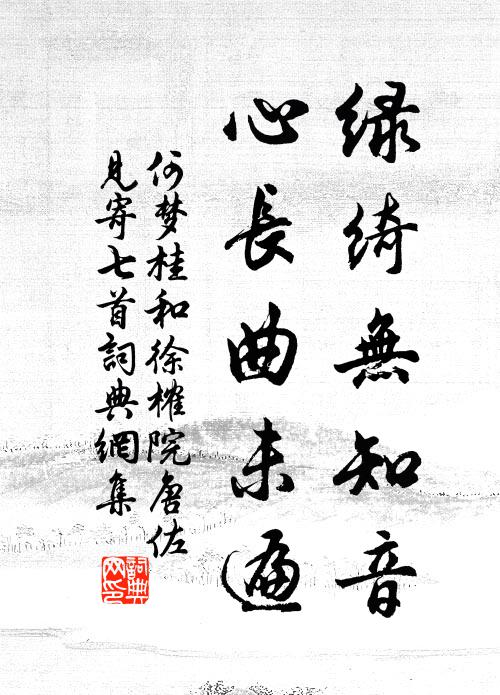 绿绮無知音
心長曲未遍
何梦桂和徐榷院唐佐
見寄七首詞典網集
詞典网印